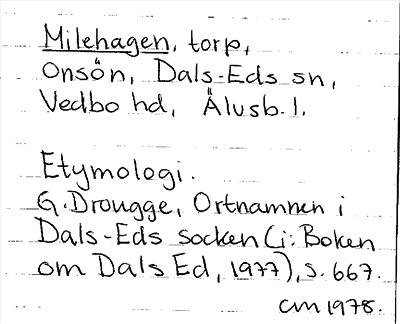 Milehagen, torp,
Onsön, Dals-Eds sn,
Vedbo hd, Älvsb. l.
Etymologi.
G. Drougge, Ortnamnen i
Dals-Eds socken (i: Boken
om Dals Ed, 1977), s. 667.
CM 1978.